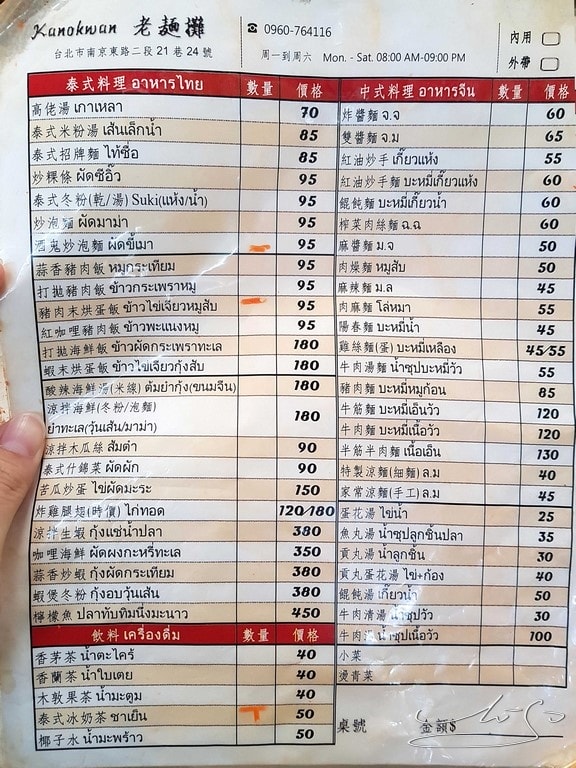 Kanokwan 老麵攤
台北市南京東路二段 21 巷 24 號
☎ 0960-764116
周一到周六 Mon. - Sat. 08:00 AM-09:00 PM
內用
外帶
泰式料理 อาหารไทย 數量 價格
高佬湯 เกาเหลา 70
泰式米粉湯 เส้นเล็กน้ำ 85
泰式招牌麵 โท้ซื่อ 85
炒粿條 ผัดซีอิ๊ว 95
泰式冬粉(乾/湯) Suki(แห้ง/น้ำ) 95
炒泡麵 ผัดมาม่า 95
酒鬼炒泡麵 ผัดขี้เมา 95
蒜香豬肉飯 หมูกระเทียม 95
打拋豬肉飯 ข้าวกระเพราหมู 95
豬肉末烘蛋飯 ข้าวไข่เจียวหมูสับ 95
紅咖哩豬肉飯 ข้าวพะแนงหมู 95
打拋海鮮飯 ข้าวผัดกระเพราทะเล 180
蝦末烘蛋飯 ข้าวไข่เจียวกุ้งสับ 180
酸辣海鮮湯(米線) ต้มยำกุ้ง(ขนมจีน) 180
涼拌海鮮(冬粉/泡麵)
ยำทะเล(วุ้นเส้น/มาม่า) 180
涼拌木瓜絲 ส้มตำ 90
泰式什錦菜 ผัดผัก 90
苦瓜炒蛋 ไข่ผัดมะระ 150
炸雞腿翅(時價) ไก่ทอด 120/180
涼拌生蝦 กุ้งแช่น้ำปลา 380
咖哩海鮮 ผัดผงกะหรี่ทะเล 350
蒜香炒蝦 กุ้งผัดกระเทียม 380
蝦煲冬粉 กุ้งอบวุ้นเส้น 380
檸檬魚 ปลาทับทิมนึ่งมะนาว 450
飲料 เครื่องดื่ม 數量 價格
香茅茶 น้ำตะไคร้ 40
香蘭茶 น้ำใบเตย 40
木敦果茶 น้ำมะตูม 40
泰式冰奶茶 ชาเย็น 50
椰子水 น้ำมะพร้าว 50
中式料理 อาหารจีน 數量 價格
炸醬麵 จ.จ 60
雙醬麵 จ.ม 65
紅油炒手 เกี๊ยวแห้ง 55
紅油炒手麵 บะหมี่เกี๊ยวแห้ง 60
餛飩麵 บะหมี่เกี๊ยวน้ำ 60
榨菜肉絲麵 ฉ.ฉ 60
麻醬麵 ม.จ 50
肉燥麵 หมูสับ 50
麻辣麵 ม.ล 45
肉麻麵 โล่หมา 55
陽春麵 บะหมี่น้ำ 45
雞絲麵(蛋) บะหมี่เหลือง 45/55
牛肉湯麵 น้ำซุปบะหมี่วัว 55
豬肉麵 บะหมี่หมูก้อน 85
牛筋麵 บะหมี่เอ็นวัว 120
牛肉麵 บะหมี่เนื้อวัว 120
半筋半肉麵 เนื้อเอ็น 130
特製涼麵(細麵) ล.ม 40
家常涼麵(手工) ล.ม 45
蛋花湯 ไข่น้ำ 25
魚丸湯 น้ำซุปลูกชิ้นปลา 35
貢丸湯 น้ำลูกชิ้น 30
貢丸蛋花湯 ไข่+ก้อง 40
餛飩湯 เกี๊ยวน้ำ 50
牛肉清湯 น้ำซุปวัว 30
牛肉湯 น้ำซุปเนื้อวัว 100
小菜
燙青菜
桌號 金額$